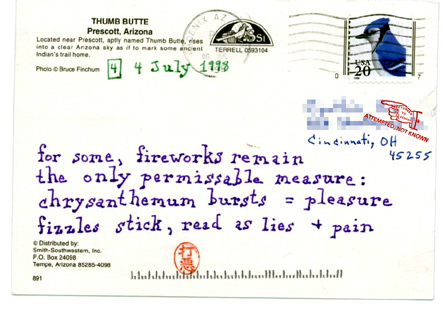 THUMB BUTTE
Prescott, Arizona
Located near Prescott, aptly named Thumb Butte, rises
into a clear Arizona sky as if to mark some ancient
Indian's trail home.
Photo © Bruce Finchum
4 4 July 1998
TERRELL 0593104
USA
20
ATTEMPTED NOT KNOWN
Cincinnati, OH
45255
for some, fireworks remain
the only permissable measure:
chrysanthemum bursts = pleasure
fizzles stick, read as lies + pain
© Distributed by:
Smith-Southwestern, Inc.
P.O. Box 24098
Tempe, Arizona 85285-4098
891